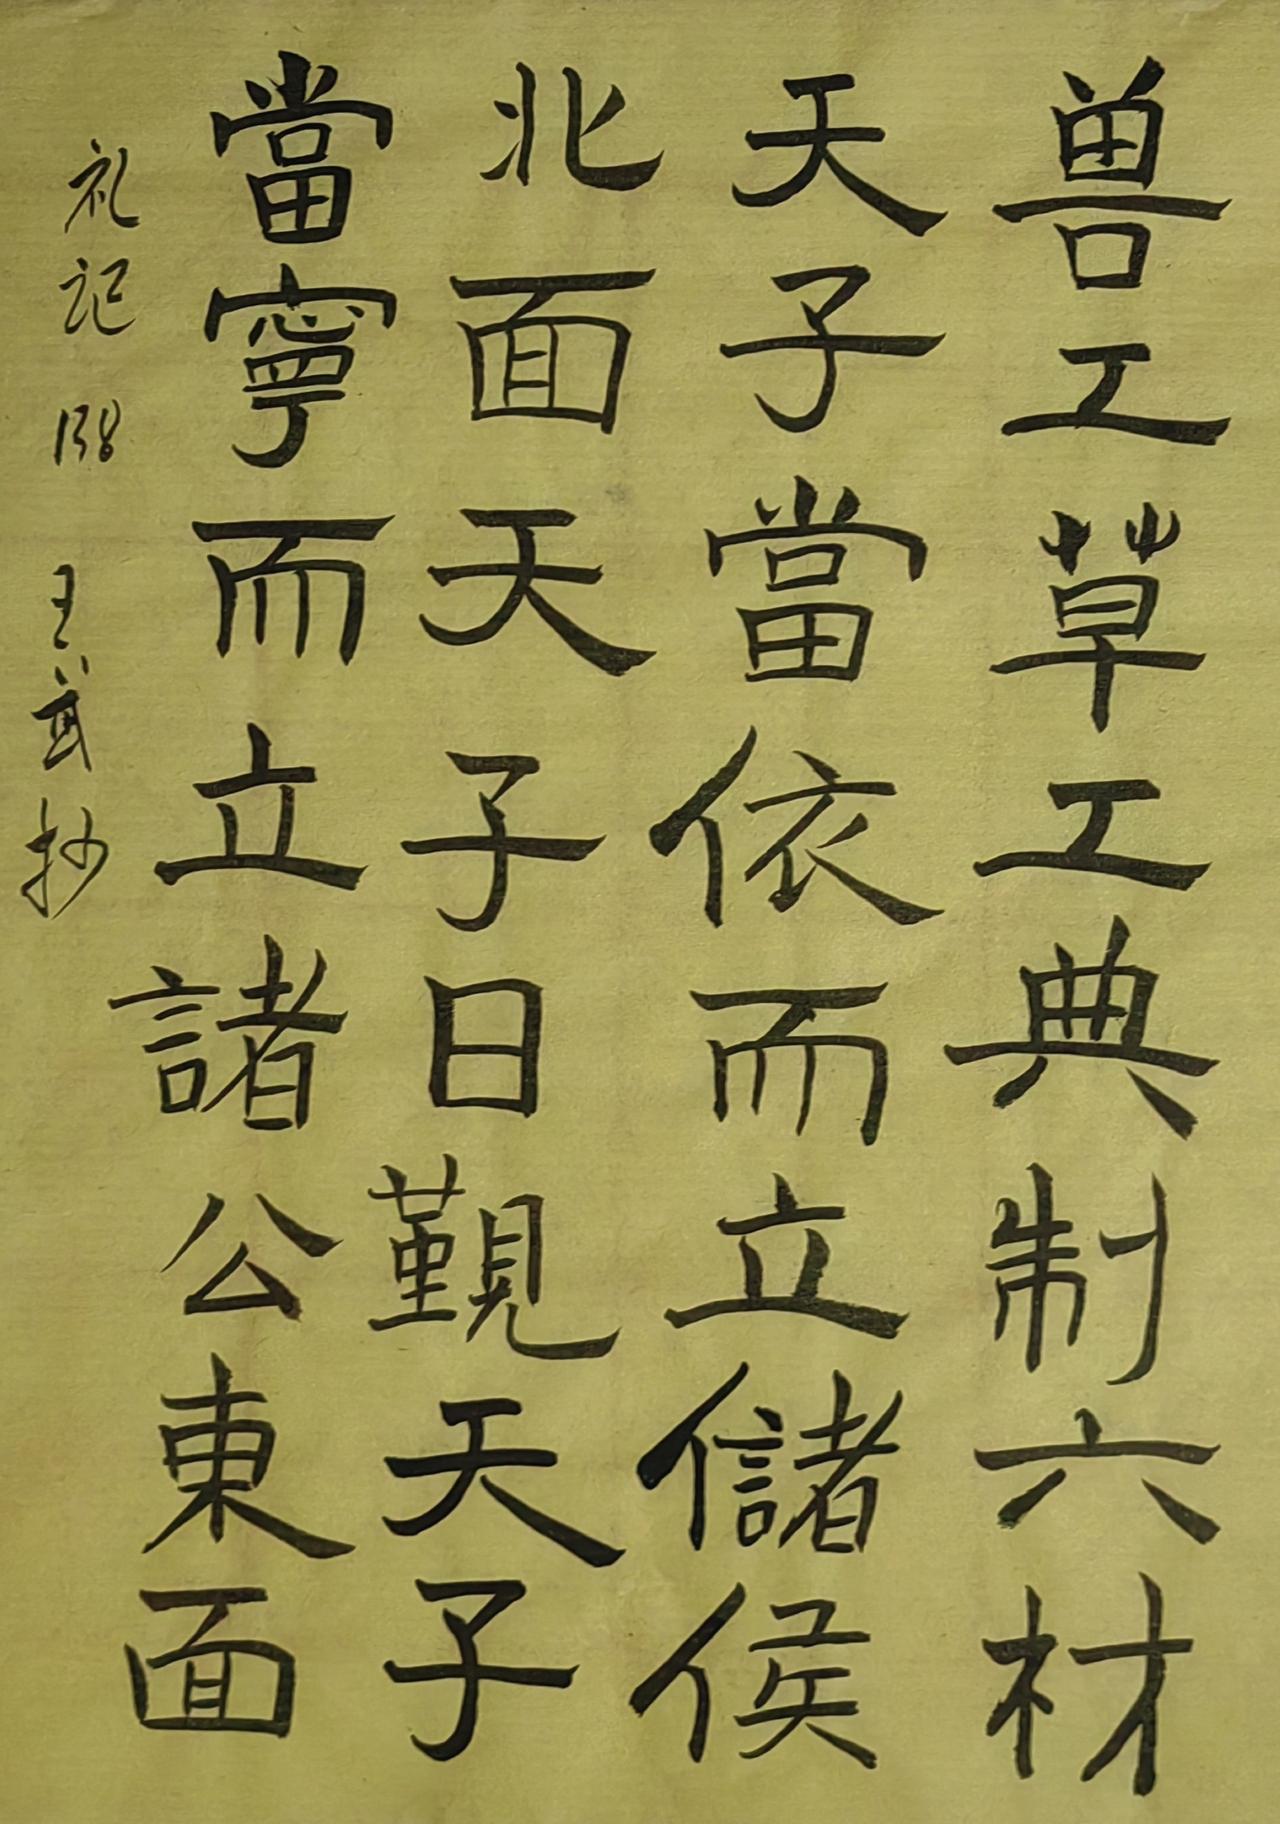 兽工草工典制六材
天子當依而立儲侯
北面天子日覲天子
當寧而立諸公東面
礼记 138 王武抄